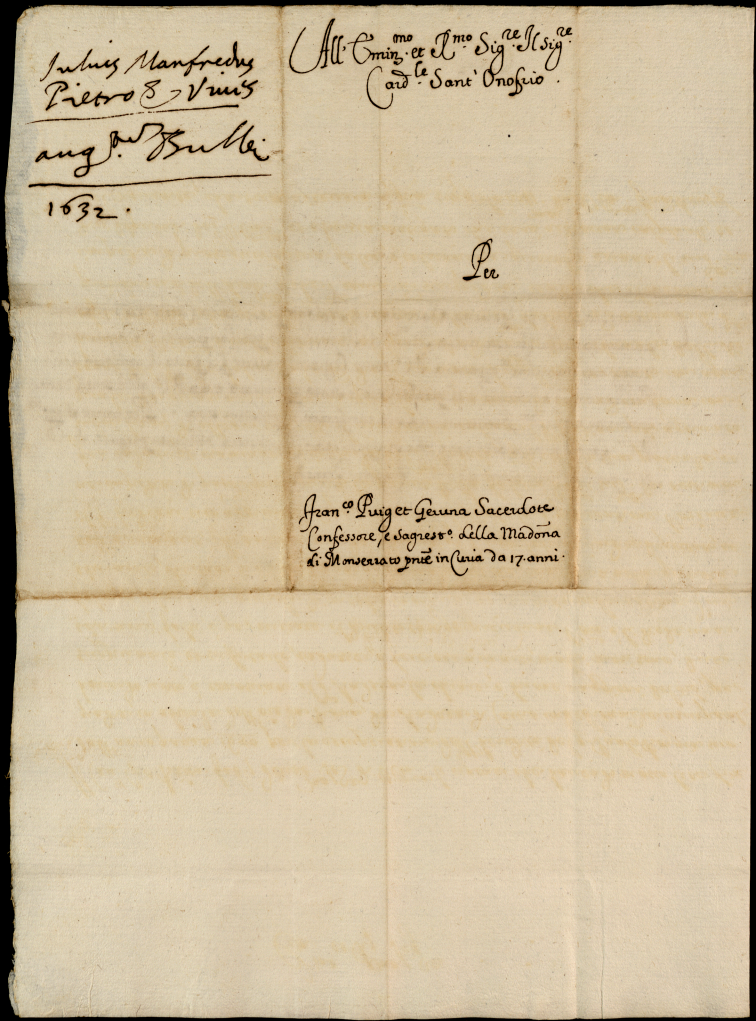 Julius Manfredus
Pietro & Vivis
aug.
1632.
All' Emin.mo et R.mo Sig.re Il Sig.re
Card.le Sant' Onofrio.
Per
Fran.co Puig et Geruna Sacerdote
Confessore, e Sagrest.o della Madon̄a
di Monserrato pn̄te in Curia da 17. anni.